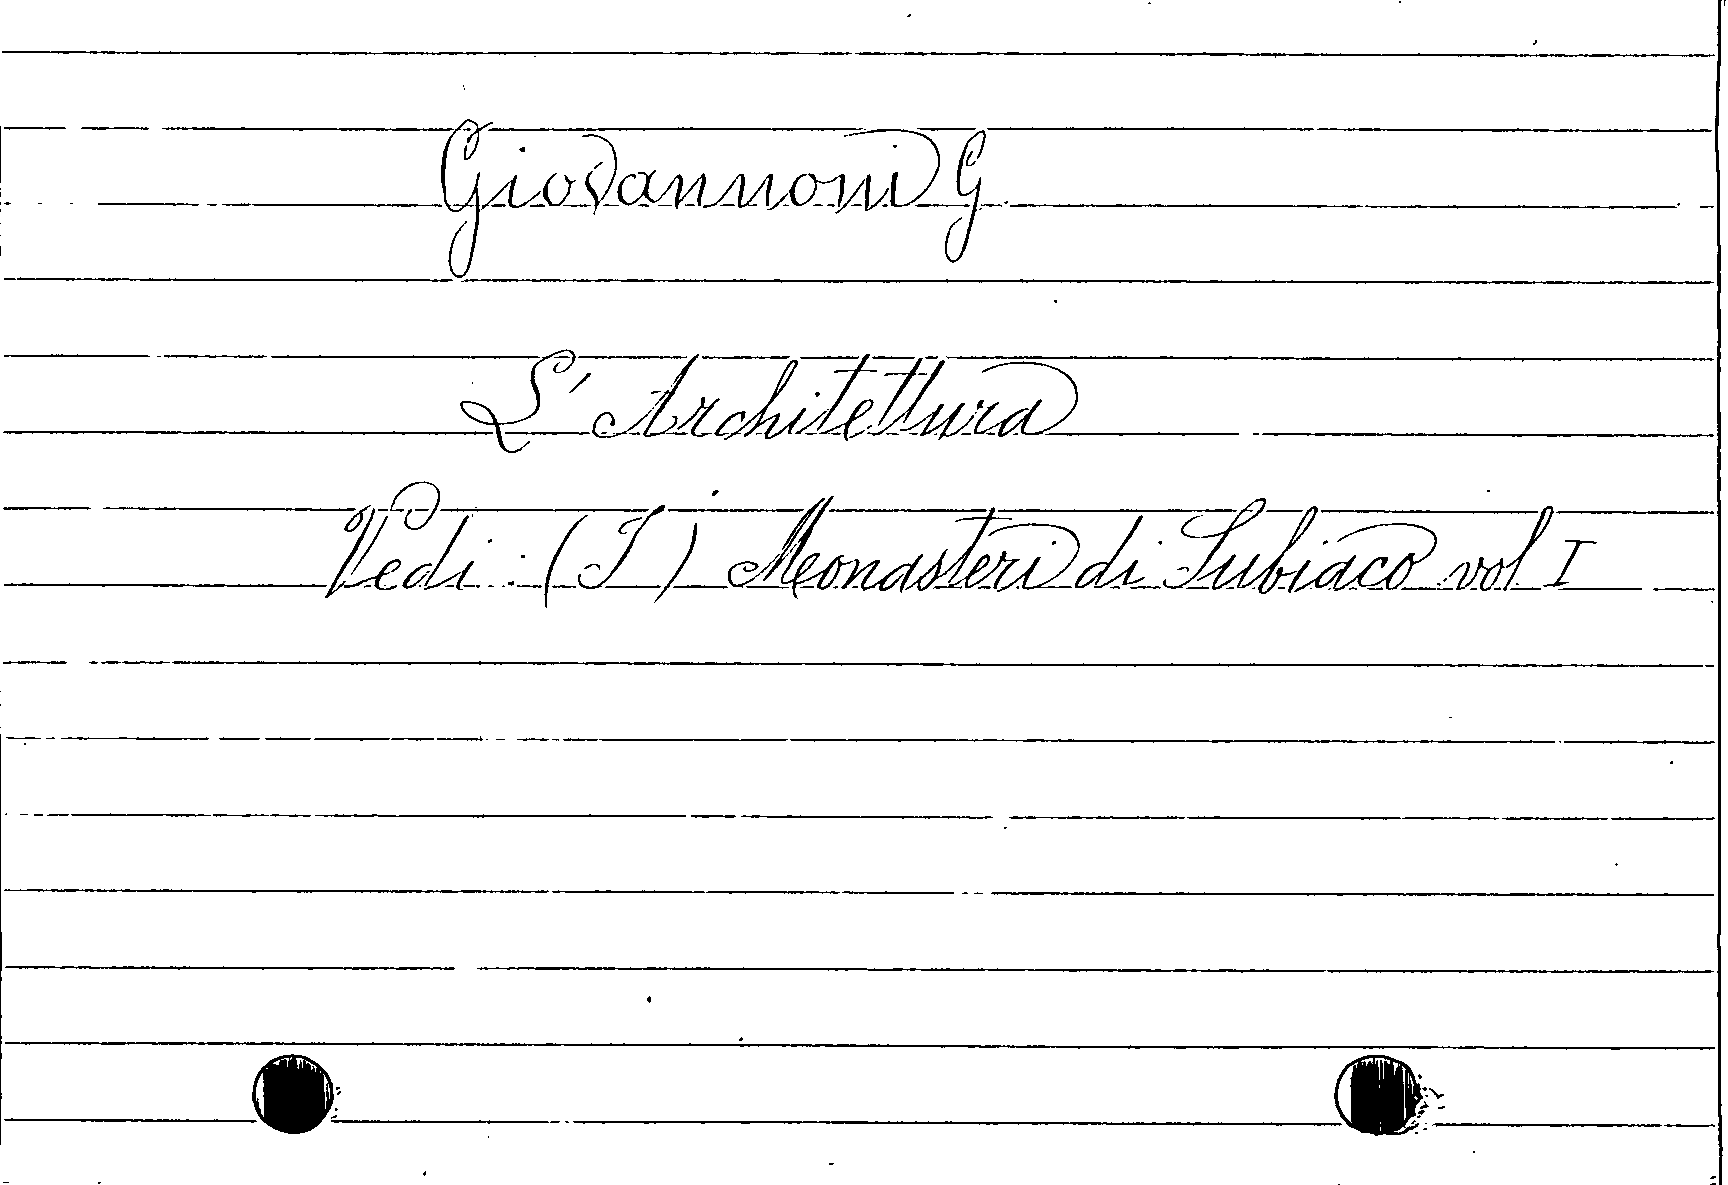 Giovannoni G
L'Architettura
Vedi: (I) Monasteri di Subiaco vol I